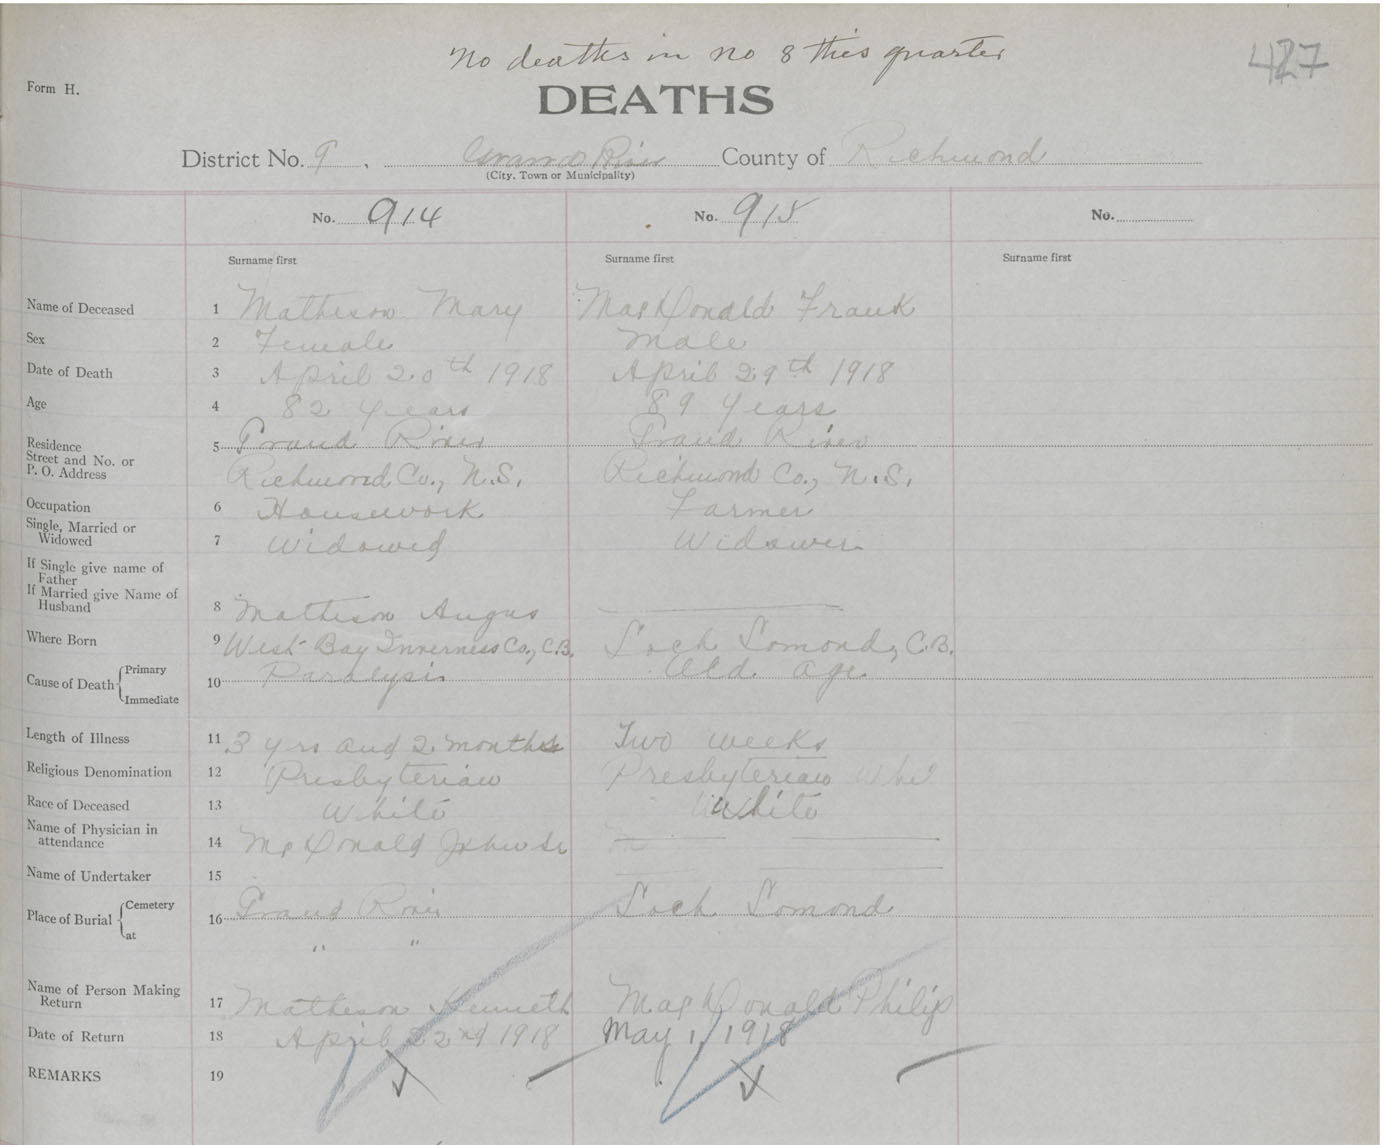 No deaths in no 8 this quarter
427
Form H.
DEATHS
District No. 9, Grand River County of Richmond
(City, Town or Municipality)
No. 914 No. 915 No.
Surname first Surname first Surname first
Name of Deceased 1 Matheson Mary MacDonald Frank
Sex 2 Female Male
Date of Death 3 April 20th 1918 April 29th 1918
Age 4 82 years 89 years
Residence 5 Grand River Grand River
Street and No. or
P. O. Address Richmond Co., N.S. Richmond Co., N.S.
Occupation 6 Housework Farmer
Single, Married or
Widowed 7 Widowed Widower
If Single give name of
Father
If Married give Name of
Husband 8 Matheson Angus
Where Born 9 West Bay Inverness Co., C.B. Loch Lomond, C.B.
Cause of Death Primary 10 Paralysis Old age
Immediate
Length of Illness 11 3 yrs and 2 months Two weeks
Religious Denomination 12 Presbyterian Presbyterian Whi
Race of Deceased 13 White White
Name of Physician in
attendance 14 McDonald John
Name of Undertaker 15
Place of Burial Cemetery 16 Grand River Loch Lomond
at " "
Name of Person Making
Return 17 Matheson Kenneth MacDonald Philip
Date of Return 18 April 22nd 1918 May 1, 1918
REMARKS 19